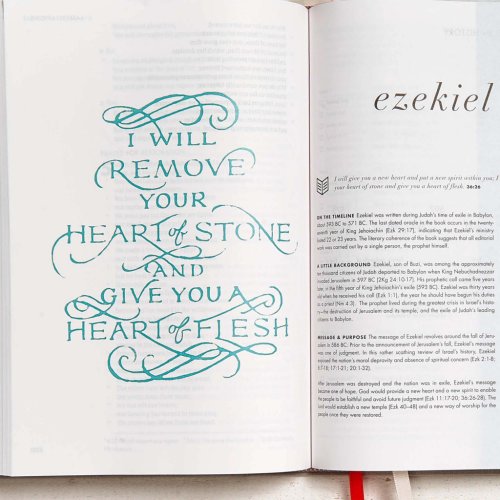 I WILL
REMOVE
YOUR
HEART of STONE
AND
GIVE YOU A
HEART of FLESH
ezekiel
I will give you a new heart and put a new spirit within you; I
your heart of stone and give you a heart of flesh. 36:26
ON THE TIMELINE Ezekiel was written during Judah's time of exile in Babylon,
about 593 BC to 571 BC. The last dated oracle in the book occurs in the twenty-
seventh year of King Jehoiachin (Ezk 29:17), indicating that Ezekiel's ministry
lasted 22 or 23 years. The literary coherence of the book suggests that all editorial
work was carried out by a single person, the prophet himself.
A LITTLE BACKGROUND Ezekiel, son of Buzi, was among the approximately
ten thousand citizens of Judah deported to Babylon when King Nebuchadnezzar
invaded Jerusalem in 597 BC (2Kg 24:10-17). His prophetic call came five years
later, in the fifth year of King Jehoiachin's exile (593 BC). Ezekiel was thirty years
old when he received his call (Ezk 1:1), the year he should have begun his duties
as a priest (Nm 4:3). The prophet lived during the greatest crisis in Israel's his-
tory—the destruction of Jerusalem and its temple, and the exile of Judah's citizens
to Babylon.
MESSAGE & PURPOSE The message of Ezekiel revolves around the fall of Jeru-
salem in 586 BC. Prior to the announcement of Jerusalem's fall, Ezekiel's message
was one of judgment. In this rather scathing review of Israel's history, Ezekiel
exposed the nation's moral depravity and absence of spiritual concern (Ezk 2:1-8;
8:7-18; 17:1-21; 20:1-32).
After Jerusalem was destroyed and the nation was in exile, Ezekiel's message
became one of hope. God would provide a new heart and a new spirit to enable
the people to be faithful and avoid future judgment (Ezk 11:17-20; 36:26-28). The
Lord would establish a new temple (Ezk 40–48) and a new way of worship for the
people once they were restored.